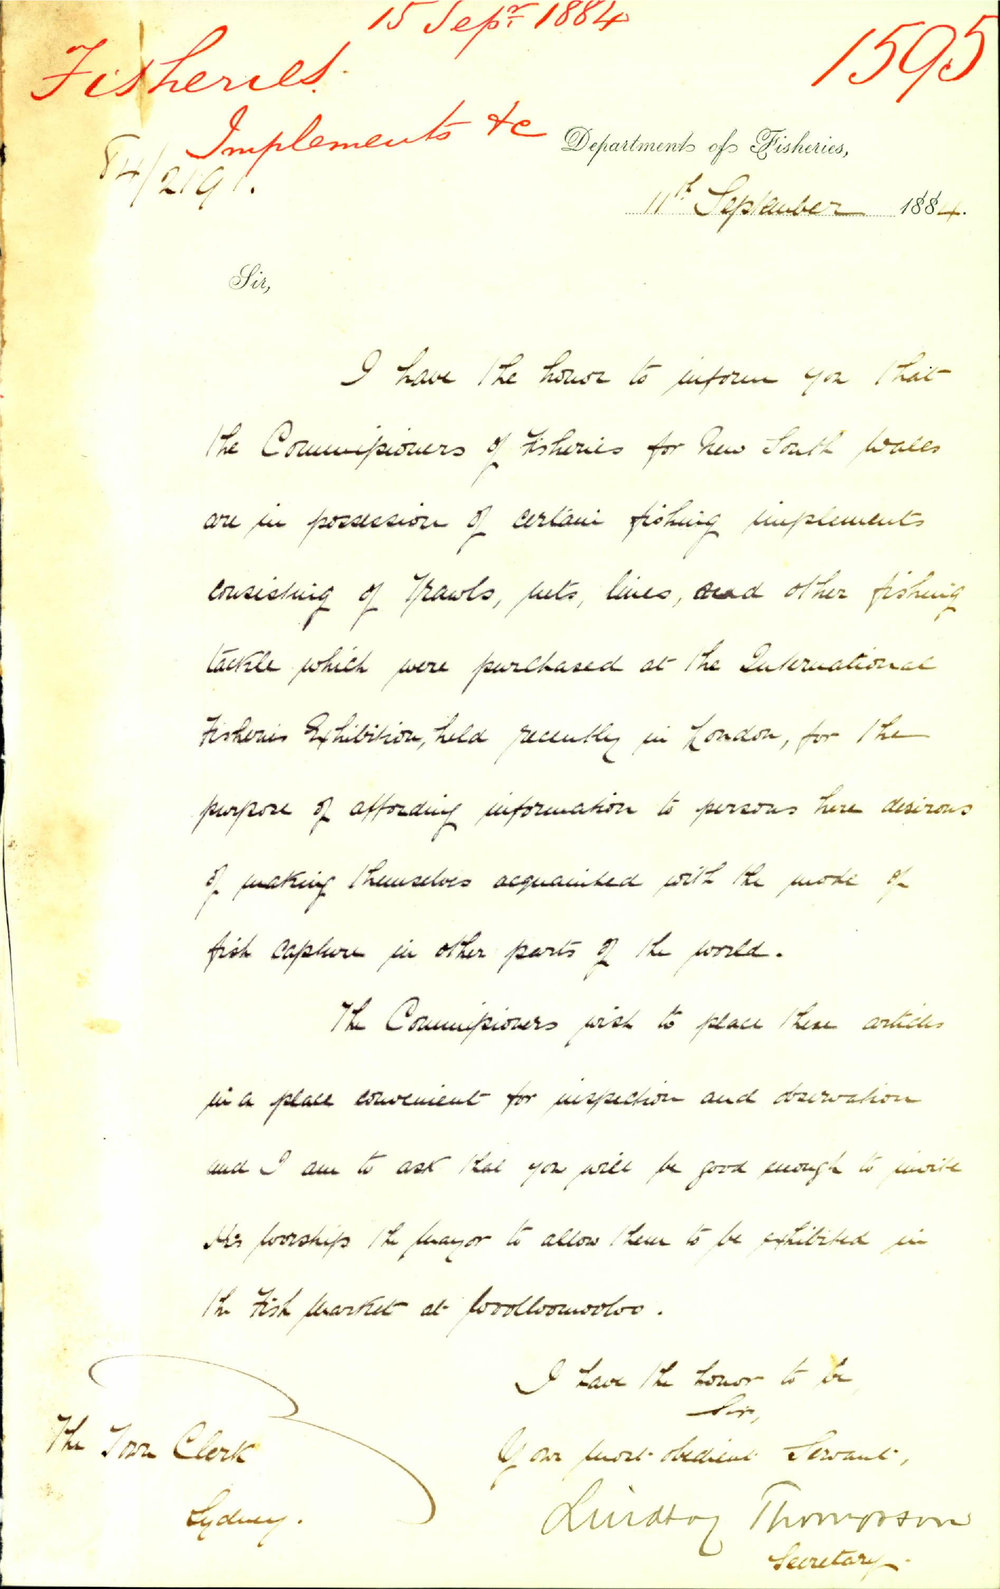 15 Sepr 1884
1595
Fisheries.
Implements &c
84/2191.
Department of Fisheries,
11th September 1884.
Sir,
I have the honor to inform you that
the Commissioners of Fisheries for New South Wales
are in possession of certain fishing implements
consisting of Trawls, nets, lines, and other fishing
tackle which were purchased at the International
Fisheries Exhibition, held recently in London, for the
purpose of affording information to persons here desirous
of making themselves acquainted with the mode of
fish capture in other parts of the world.
The Commissioners wish to place these articles
in a place convenient for inspection and observation
and I am to ask that you will be good enough to invite
His Worship the Mayor to allow them to be exhibited in
the Fish Market at Woolloomooloo.
I have the honor to be
Sir,
Your most obedient Servant,
Lindsay Thompson
Secretary.
The Town Clerk
Sydney.